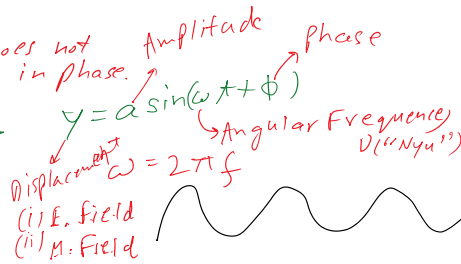 oes not
in phase.
Amplitude
Phase
y = a sin(ωt + ϕ)
Angular Frequency
υ("Nyu")
Displacement
ω = 2πf
(i) E. field
(ii) M. Field